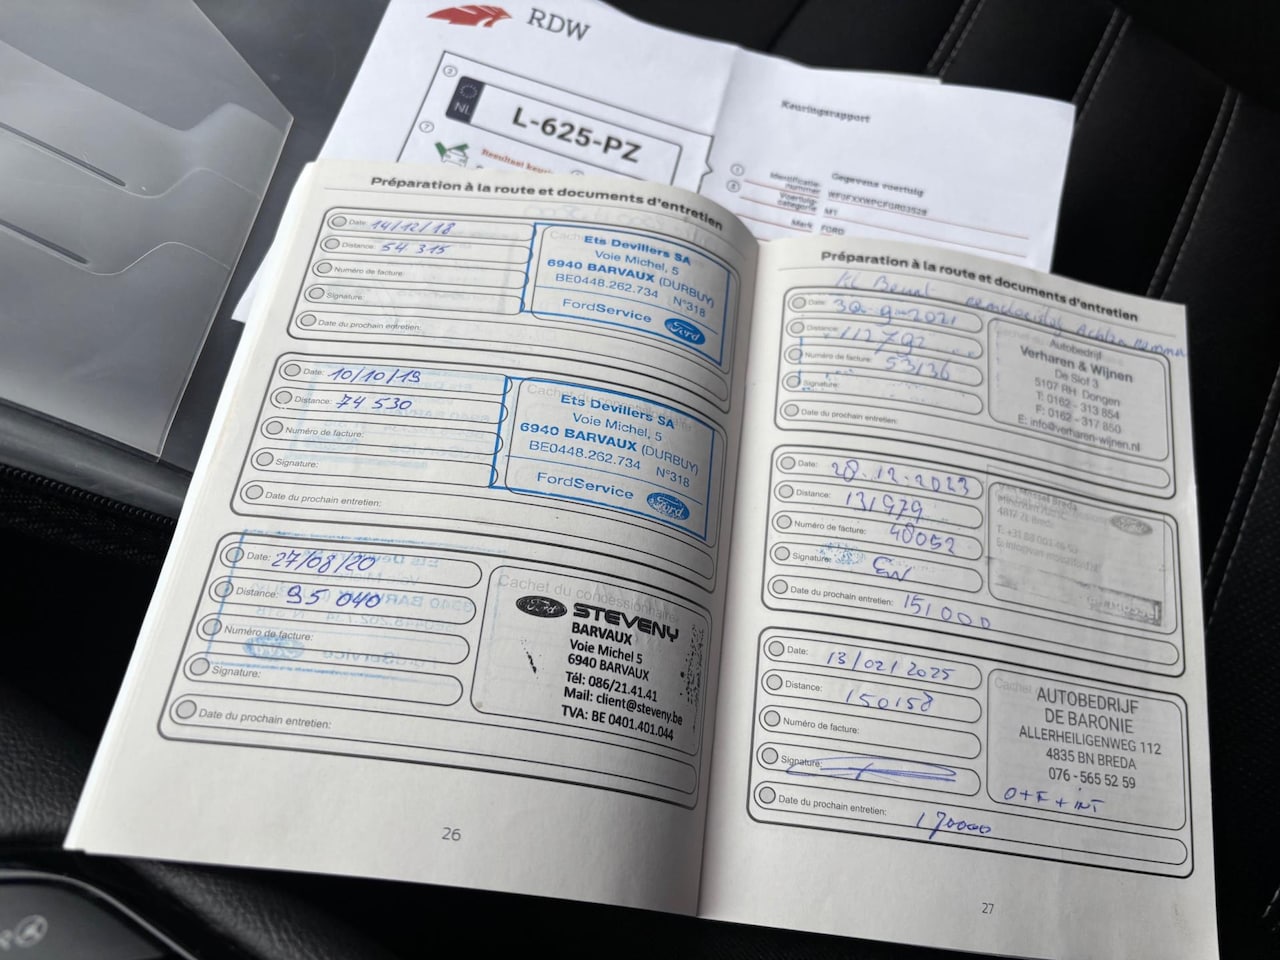 RDW
NL
L-625-PZ
Keuringsrapport
Gegevens voertuig
Mark FORD
Préparation à la route et documents d'entretien
Date: 14/12/18
Distance: 54 315
Numéro de facture:
Signature:
Date du prochain entretien:
Ets Devillers SA
Voie Michel, 5
6940 BARVAUX (DURBUY)
BE0448.262.734 N°318
FordService Ford
Date: 10/10/19
Distance: 74 530
Numéro de facture:
Signature:
Date du prochain entretien:
Ets Devillers SA
Voie Michel, 5
6940 BARVAUX (DURBUY)
BE0448.262.734 N°318
FordService Ford
Date: 27/08/20
Distance: 95 040
Numéro de facture:
Signature:
Date du prochain entretien:
Cachet du concessionnaire
Ford STEVENY
BARVAUX
Voie Michel 5
6940 BARVAUX
Tél: 086/21.41.41
Mail: client@steveny.be
TVA: BE 0401.401.044
26
Préparation à la route et documents d'entretien
Kl Beurt
Date: 30-9-2021
Distance: 112792
Numéro de facture: 53136
Signature:
Date du prochain entretien:
Autobedrijf
Verharen & Wijnen
De Slof 3
5107 RH Dongen
T: 0162 - 313 854
F: 0162 - 317 850
E: info@verharen-wijnen.nl
Date: 28.12.2023
Distance: 131979
Numéro de facture: 40052
Signature:
Date du prochain entretien: 151000
Breda
Date: 13/02/2025
Distance: 150158
Numéro de facture:
Signature:
Date du prochain entretien: 170000
Cachet
AUTOBEDRIJF
DE BARONIE
ALLERHEILIGENWEG 112
4835 BN BREDA
076 - 565 52 59
O+F+INT
27